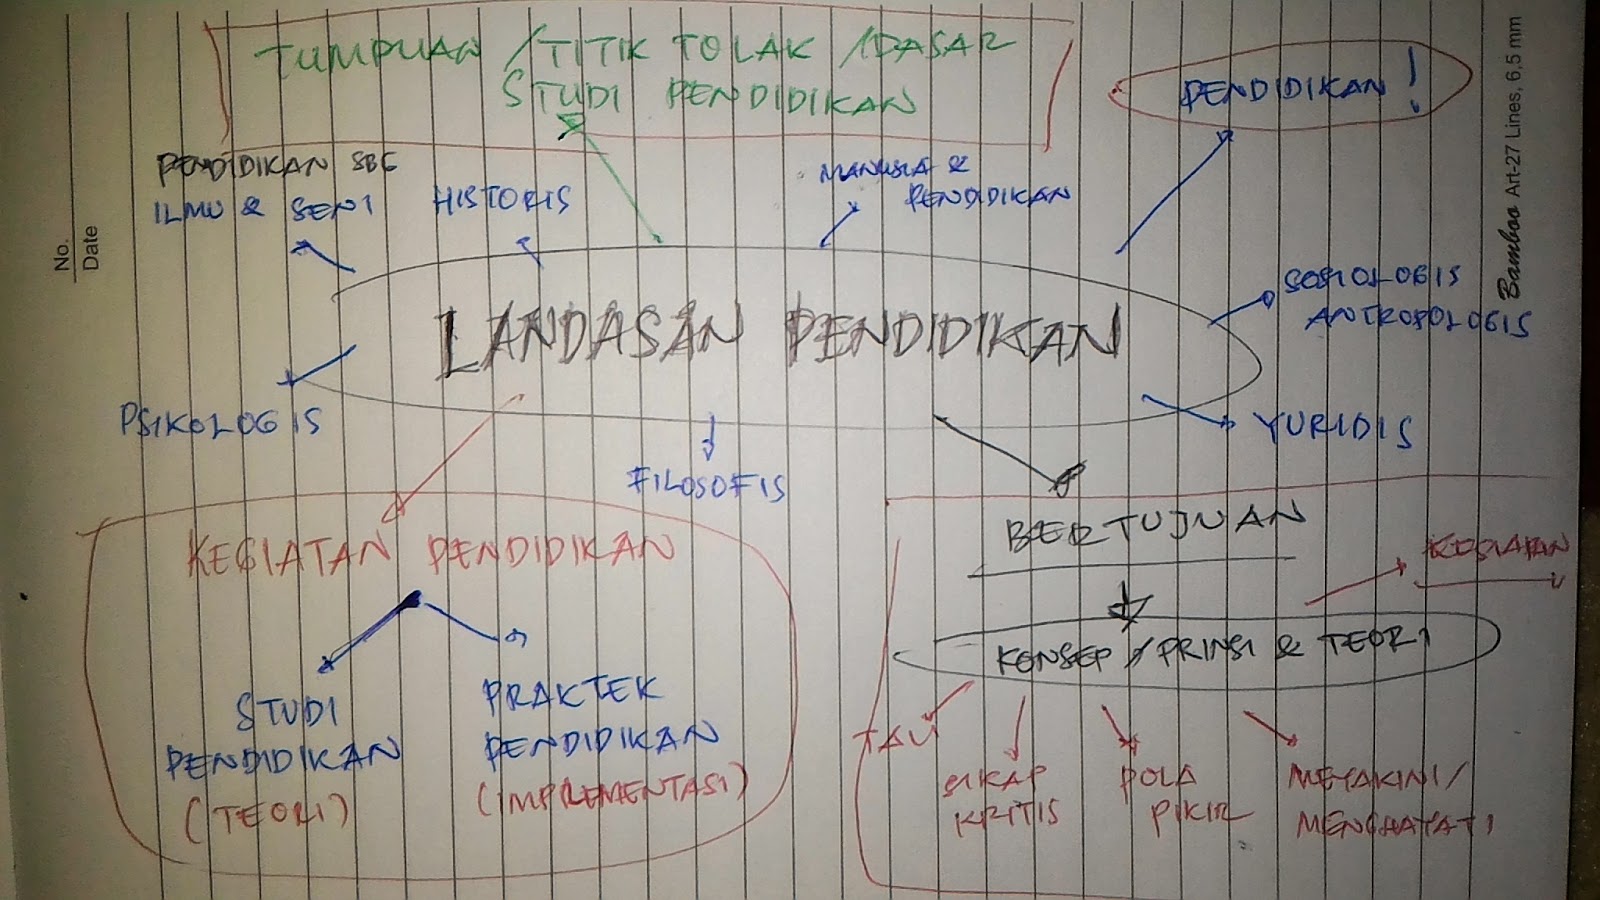 TUMPUAN / TITIK TOLAK / DASAR
STUDI PENDIDIKAN
PENDIDIKAN !
PENDIDIKAN SBG
ILMU & SENI
HISTORIS
MANUSIA &
PENDIDIKAN
LANDASAN PENDIDIKAN
SOSIOLOGIS
ANTROPOLOGIS
PSIKOLOGIS
FILOSOFIS
YURIDIS
KEGIATAN PENDIDIKAN
STUDI
PENDIDIKAN
(TEORI)
PRAKTEK
PENDIDIKAN
(IMPLEMENTASI)
BERTUJUAN
KESIAPAN
KONSEP / PRINSI & TEORI
TAU
SIKAP
KRITIS
POLA
PIKIR
MEYAKINI /
MENGHAYATI
No.
Date
Bamboo Art-27 Lines, 6,5 mm